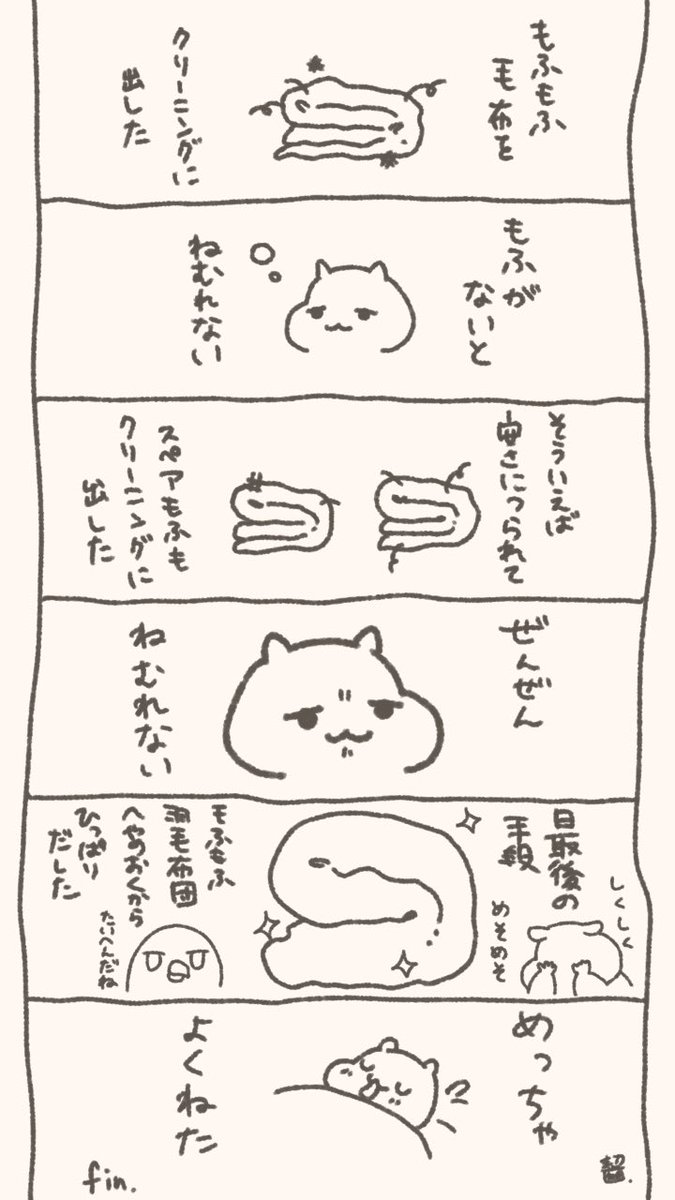 もふもふ
毛布を
クリーニングに
出した
もふが
ないと
ねむれない
そういえば
安さにつられて
スペアもふも
クリーニングに
出した
ぜんぜん
ねむれない
最後の
手段
しくしく
めそめそ
もふもふ
羽毛布団
へやのおくから
ひっぱり
だした
たいへんだね
めっちゃ
よくねた
fin.